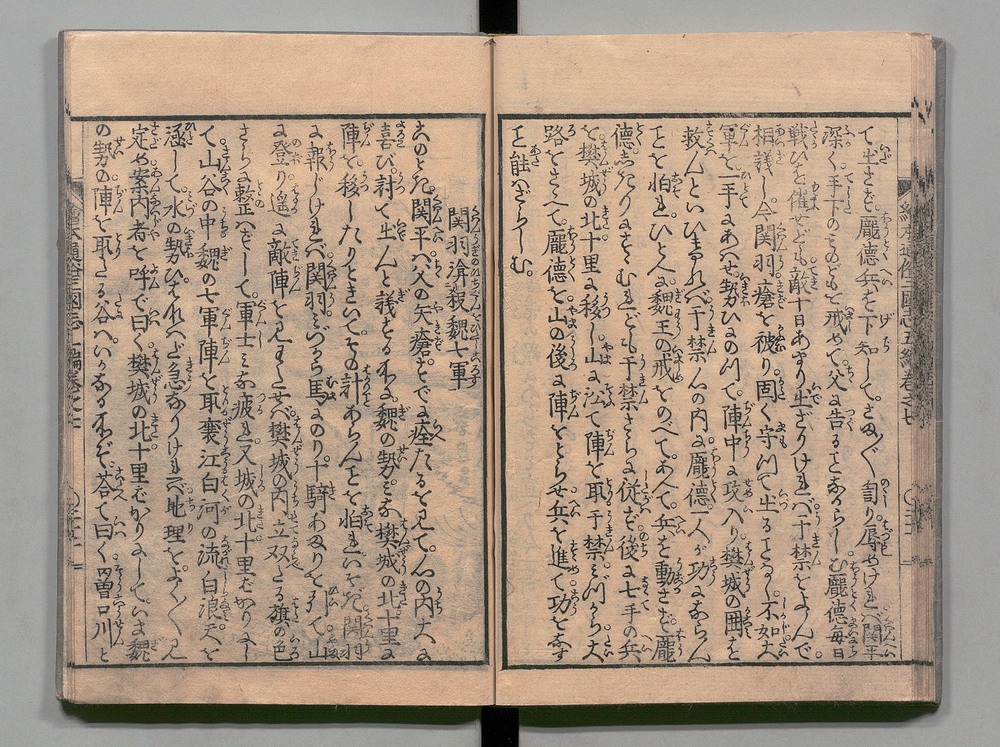 て出ざれば龐徳兵を下知してさま〴〵罵り辱めければ関平
深く手下のものどもを戒めて父に告ることなからしむ龐徳毎日
戦ひを催せども敵十日あまり出ざりければ于禁をよんで
相議し今関羽瘡を被り固く守つて出ることなし不如大
軍を一手にあはせ勢ひにのつて陣中に攻入り樊城の囲を
救んといひければ于禁心の内に龐徳一人が功にならん
ことを怕れひとへに魏王の戒をのべてあへて兵を動さず龐
徳しきりにすゝむれども于禁さらに従はず後に七手の兵
を樊城の北十里に移し山に沿て陣を取于禁みづから大
路をさへて龐徳を山の後に陣をとらせ兵を進て功をなす
こと能はざらしむ
関羽渰殺魏七軍
このとき関平は父の矢瘡すでに痊たるを見て心の内大に
喜び討て出んと議する所に魏の勢みな樊城の北十里に
陣を移したりときいてその計あらんことを怕れいそぎ関羽
に報じければ関羽みづから馬にのり十騎あまりを引て山
に登り遙に敵陣を見わたせば樊城の内に立双たる旗の色
さらに整はずして軍士みな疲れ又城の北十里ばかりにし
て山谷の中に魏の七軍陣を取襄江白河の流白浪天を
涵して水の勢ひはなはだ急なりければ地理をよく〳〵見
定め案内者を呼で曰く樊城の北十里ばかりにしていま魏
の勢の陣を取たる谷はいかなる所ぞ荅て曰く罾口川と